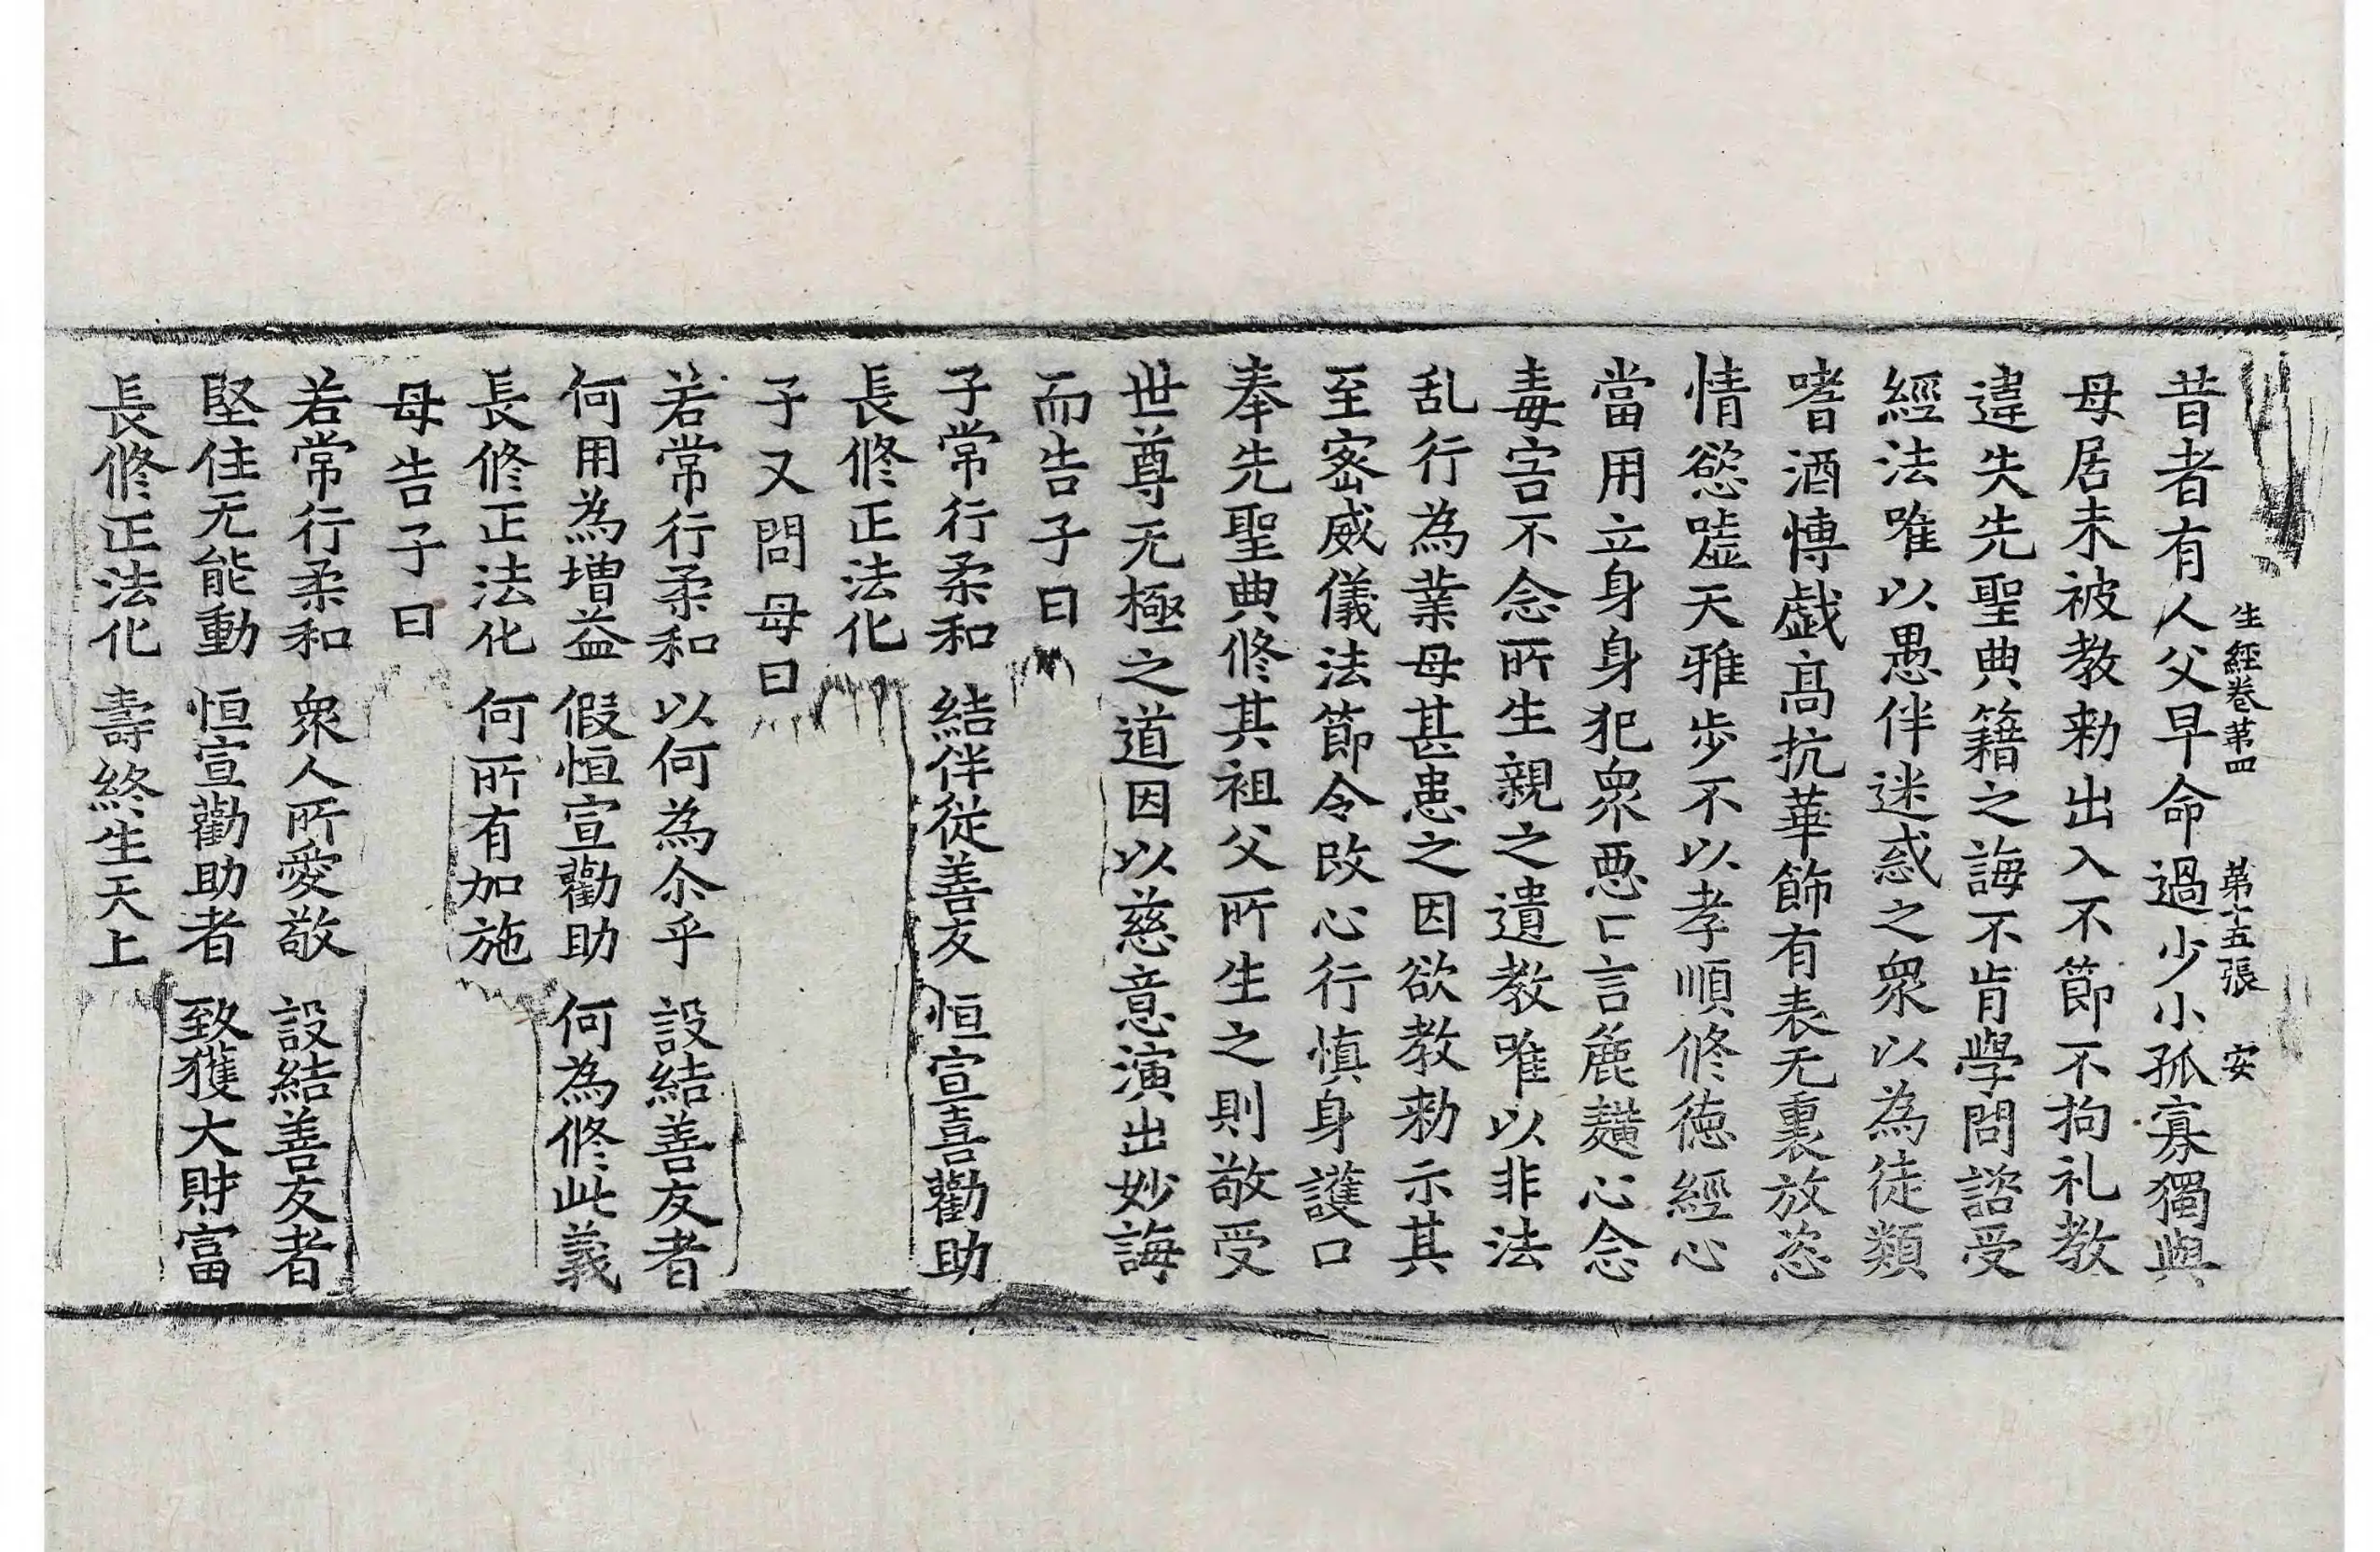 生經卷第四　第十五張　安
昔者有人父早命過少小孤寡獨與
母居未被教勑出入不節不拘礼教
違失先聖典籍之誨不肯學問諮受
經法唯以愚伴迷惑之衆以為徒類
嗜酒愽戱髙抗華飾有表无裏放恣
情慾嘘天雅步不以孝順修徳經心
當用立身身犯衆悪口言麁䵃心念
毒害不念所生親之遺教唯以非法
乱行為業母甚患之因欲教勑示其
至宻威儀法節令改心行慎身護口
奉先聖典修其祖父所生之則敬受
世尊无極之道因以慈意演出妙誨
而告子曰
子常行柔和　結伴従善友　恒宣喜勸助
長修正法化
子又問母曰
若常行柔和　以何為尒乎　設結善友者
何用為增益　假恒宣勸助　何為修此義
長修正法化　何所有加施
母告子曰
若常行柔和　衆人所愛敬　設結善友者
堅住无能動　恒宣勸助者　致獲大財富
長修正法化　壽終生天上